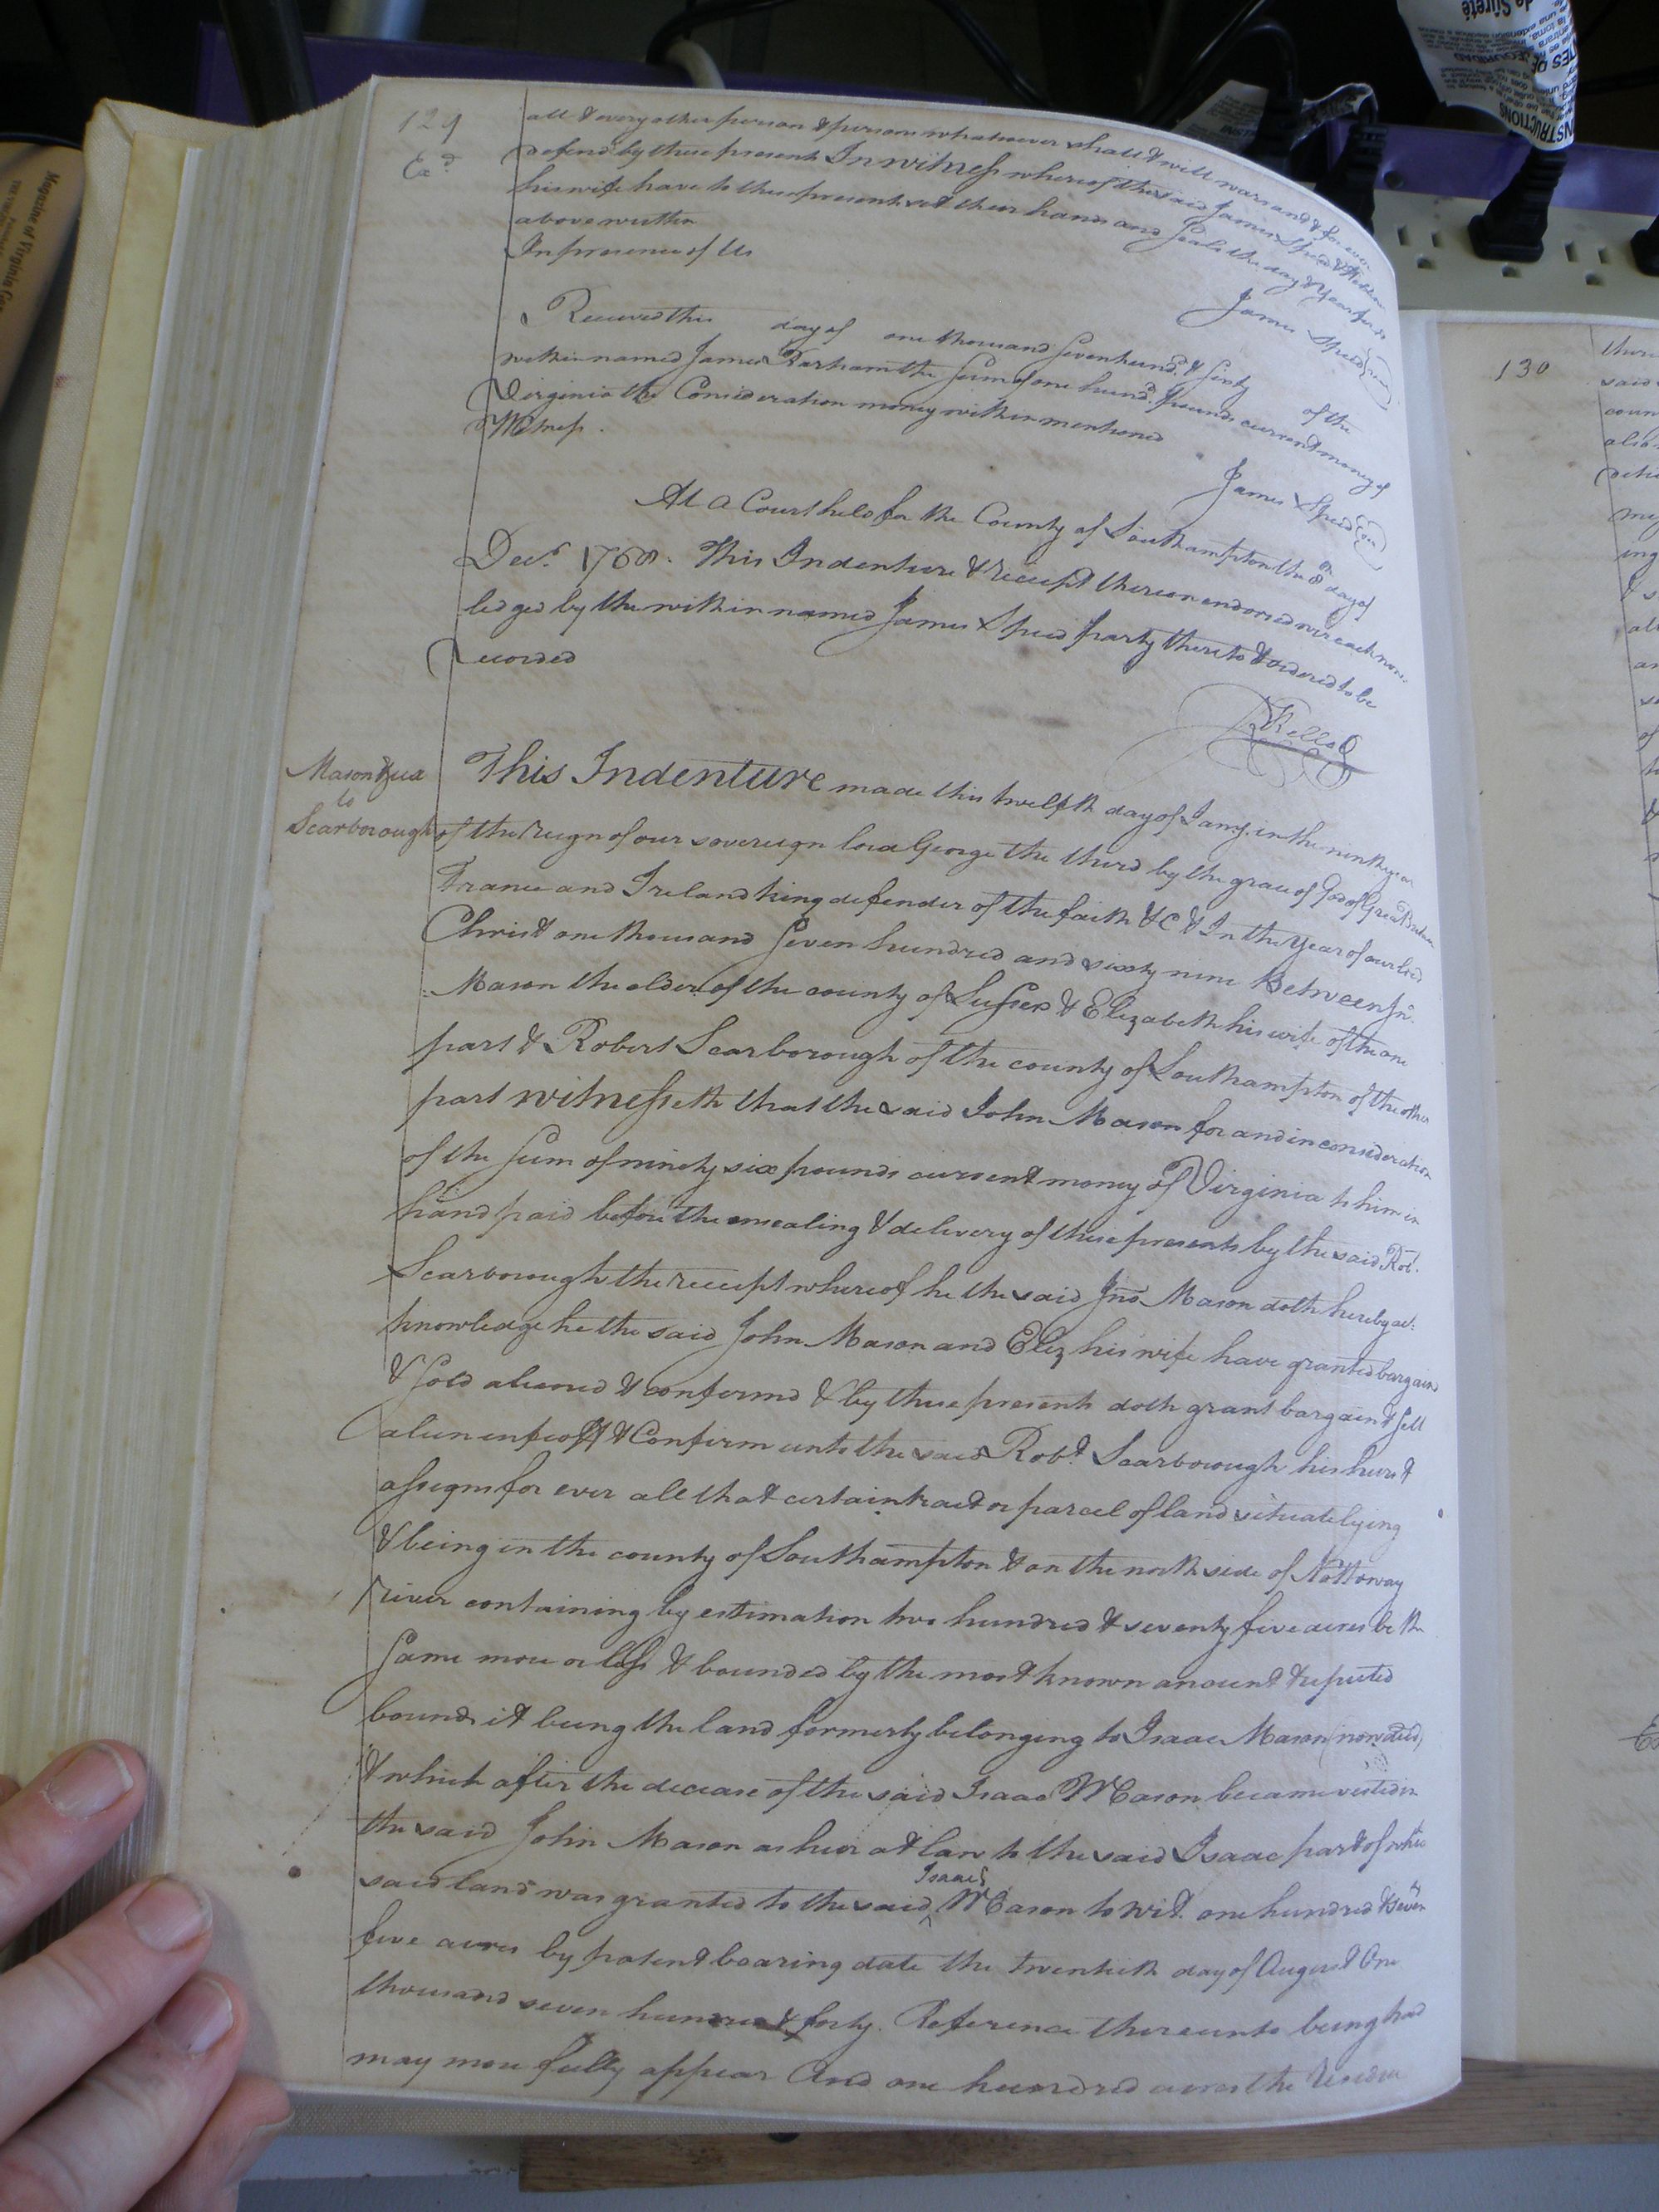 129
Exd.
all & every other person & persons whatsoever shall & will warrant & forever
defend by these presents In witness whereof the said James Speed &
his wife have to these presents set their hands and Seals the day & Year first
above written
In presence of Us
James Speed (seal)
Received this day of one thousand Seven hund. & sixty of the
within named James Barham the Sum of one hund. pounds current money of
Virginia the Consideration money within mentioned
Witness.
James Speed
At a Court held for the County of Southampton the 8th day of
Decr. 1768. This Indenture & receipt thereon endorsed were acknow-
ledged by the within named James Speed party thereto & ordered to be
Recorded
RKello
Mason & ux
to
Scarborough
This Indenture made this twelfth day of Jany. in the ninth year
of the reign of our sovereign lord George the third by the grace of God of Great Britain
France and Ireland king defender of the faith &c & In the Year of our Lord
Christ one thousand Seven hundred and sixty nine Between Jno.
Mason the elder of the county of Sussex & Elizabeth his wife of the one
part & Robert Scarborough of the county of Southampton of the other
part witnesseth that the said John Mason for and in consideration
of the Sum of ninety six pounds current money of Virginia to him in
hand paid before the ensealing & delivery of these presents by the said Rob.
Scarborough the receipt whereof he the said Jno. Mason doth hereby ac-
knowledge he the said John Mason and Eliz his wife have granted bargaind
& Sold aliened & confermd & by these presents doth grant bargain & sell
alien enfeoff & Confirm unto the said Robt. Scarborough his heirs &
assigns for ever all that certain tract or parcel of land situate lying
& being in the county of Southampton & on the north side of Nottoway
river containing by estimation two hundred & seventy five acres be the
Same more or less & bounded by the most known ancient & reputed
bounds it being the land formerly belonging to Isaac Mason (now decd.)
& which after the decease of the said Isaac Mason became vested in
the said John Mason as heir at law to the said Isaac part of which
said land was granted to the said ^ Isaac Mason to wit. one hundred & seven
five acres by patent bearing date the twentieth day of August One
thousand seven hundred & forty. Reference thereunto being had
may more fully appear And one hundred acres the residue
130
said
coun
Magazine of Virginia Ge
de Sûreté
INSTRUCTIONS